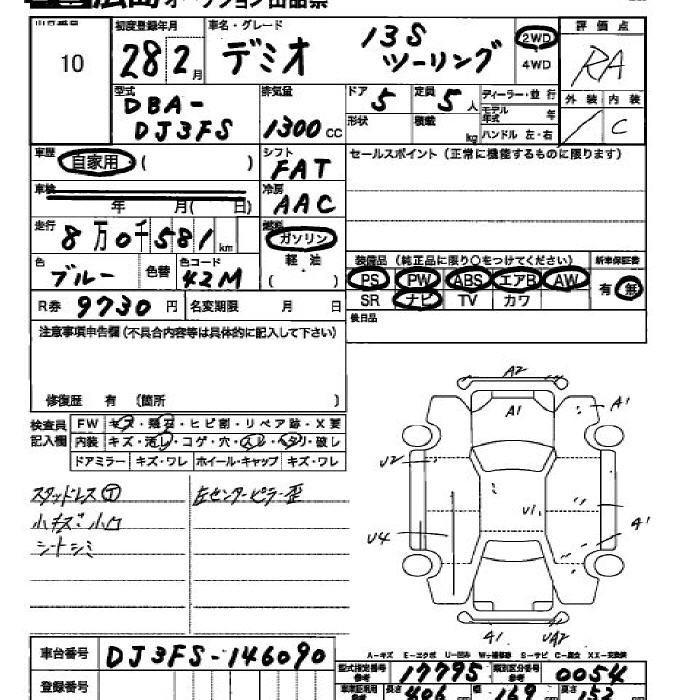 広島 オークション出品票
初度登録年月 車名・グレード 評価点
10 28 2月 デミオ 13S ツーリング 2WD 4WD RA
型式 排気量 ドア 定員 ディーラー・並行 外装 内装
DBA- DJ3FS 1300cc 5 5人 モデル年式 年 C
形状 積載 kg ハンドル 左・右
車歴 自家用 ( ) シフト FAT セールスポイント (正常に機能するものに限ります)
車検 年 月( 日) 冷房 AAC
走行 8万0千581km 燃料 ガソリン
軽油
( )
色 ブルー 色替 色コード 42M
装備品 (純正品に限り○をつけてください) 新車保証書
PS PW ABS エアB AW 有 無
SR ナビ TV カワ
R券 9730円 名変期限 月 日 後日品
注意事項申告欄 (不具合内容等は具体的に記入して下さい)
修復歴 有 (箇所 )
検査員記入欄 FW キズ・飛石・ヒビ割・リペア跡・X要
内装 キズ・汚れ・コゲ・穴・スレ・ヘタリ・破し
ドアミラー キズ・ワレ ホイール・キャップ キズ・ワレ
スタッドレス 左センターピラー歪
小キズ・小凹
シートシミ
A2
A1 A1
U2
U1
U4 A1
A1 UA2
A-キズ E-エクボ U-凹み W-補修跡 S-サビ C-腐食 XX-交換済
車台番号 DJ3FS-146090
型式指定番号 17795 類別区分番号 0054
登録番号 長さ 406 幅 169 高さ 152